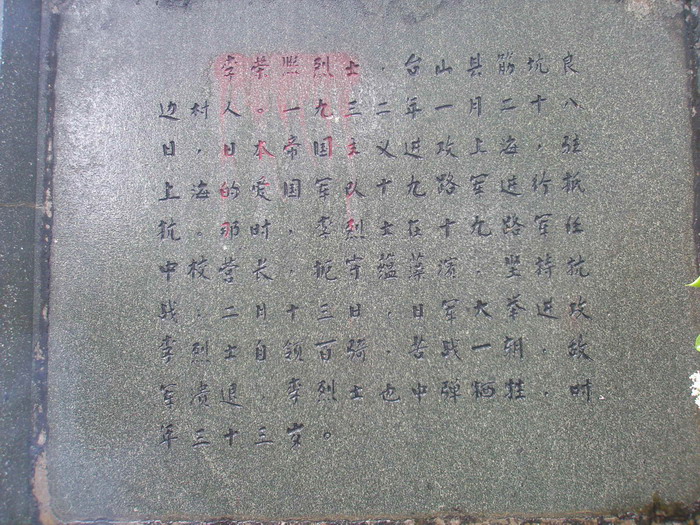 李荣熙烈士，台山县筋坑良
边村人。一九三二年一月二十八
日，日本帝国主义进攻上海，驻
上海的爱国军队十九路军进行抵
抗。那时，李烈士在十九路军任
中校营长，扼守蕴藻滨，坚持抗
战，二月十三日，日军大举进攻
李烈士自领百骑，苦战一朝，敌
军溃退 李烈士也中弹牺牲，时
年三十三岁。